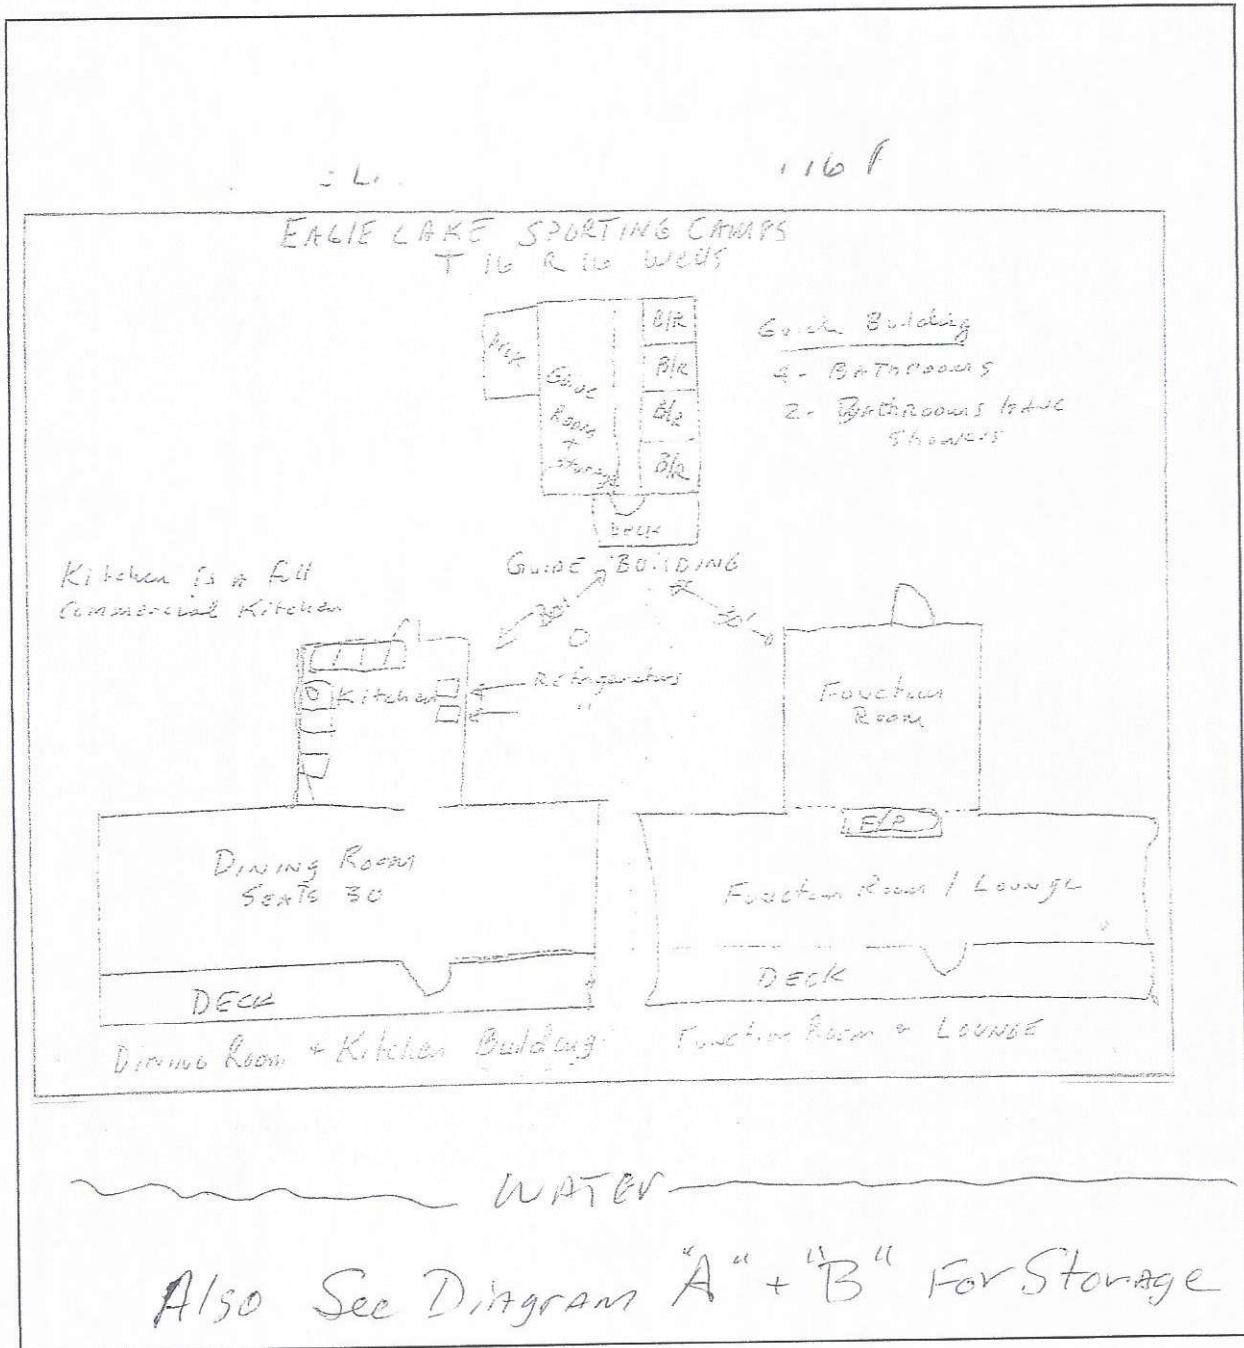 116 P
EAGLE LAKE SPORTING CAMPS
T 16 R 16 WELLS
Deck
Guide
Room
+
Storage
B/R
B/R
B/R
B/R
DECK
GUIDE BUILDING
Guide Building
4 - BATHROOMS
2 - BATHROOMS HAVE
SHOWERS
Kitchen is a full
Commercial Kitchen
30'
30'
Kitchen
Refrigerators
"
Function
Room
F/P
DINING ROOM
SEATS 30
Function Room / LOUNGE
DECK
DECK
DINING Room + Kitchen Building
Function Room + LOUNGE
WATER
Also See Diagram "A" + "B" For Storage